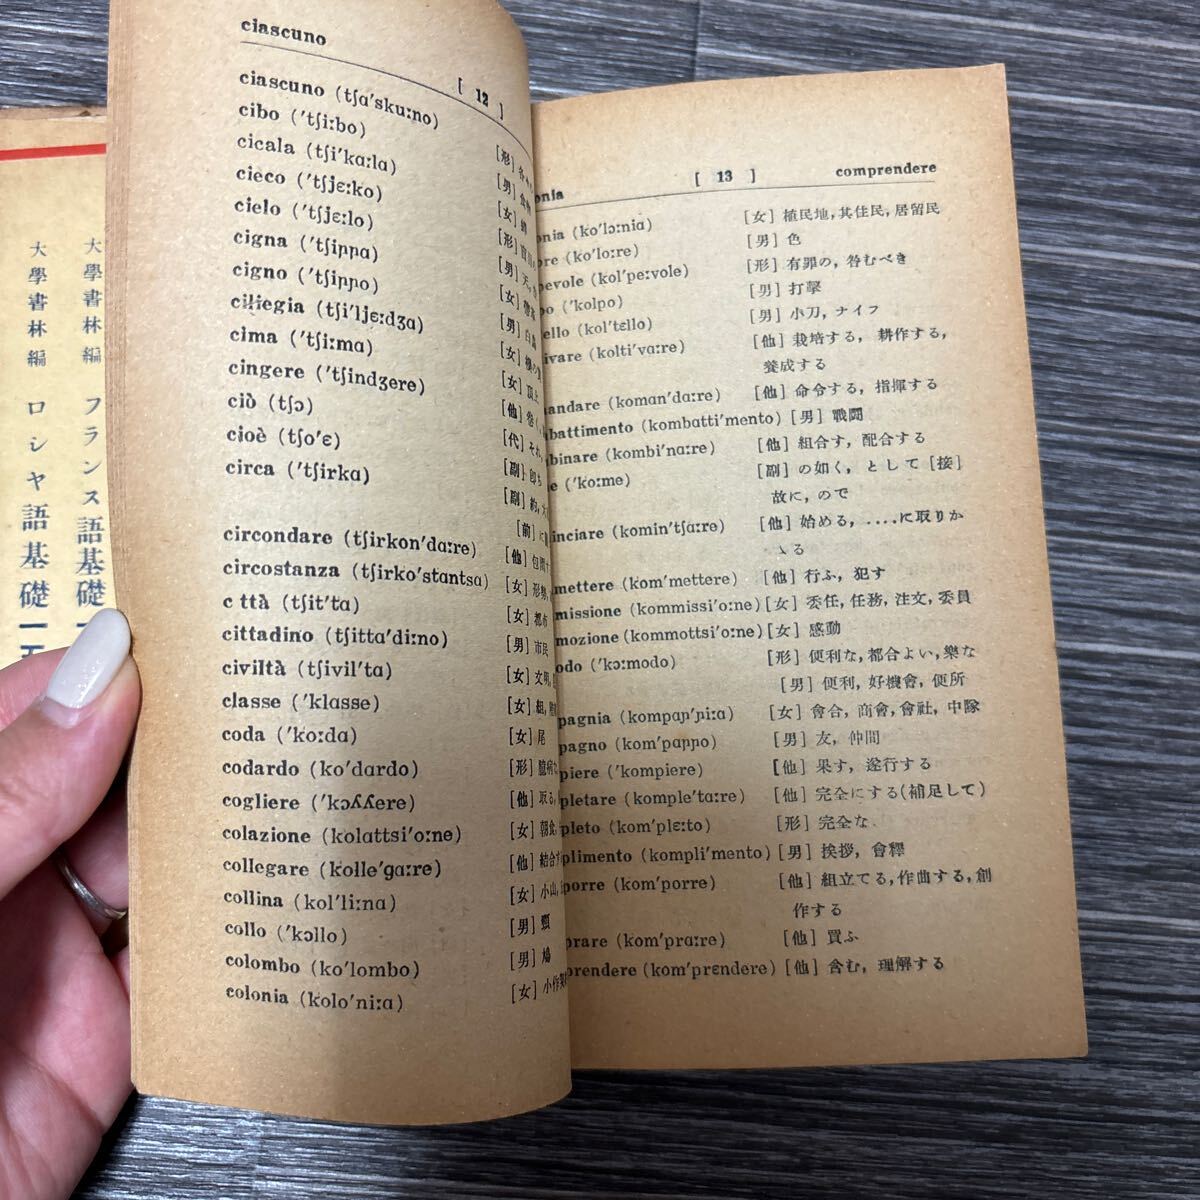 大學書林編 フランス語基礎一
大學書林編 ロシヤ語基礎一五
ciascuno
[ 12 ]
ciascuno (tʃɑ'sku:no) [形]
cibo ('tʃi:bo) [男] 食物
cicala (tʃi'kɑ:lɑ) [女] 蟬
cieco ('tʃjɛ:ko) [形]
cielo ('tʃjɛ:lo) [男]
cigna ('tʃiɲɲɑ) [女]
cigno ('tʃiɲɲo) [男] 白鳥
ciliegia (tʃi'ljɛ:dʒɑ) [女]
cima ('tʃi:mɑ) [女] 頂上
cingere ('tʃindʒere) [他]
ciò (tʃɔ) [代] それ,
cioè (tʃo'ɛ) [副] 卽ち
circa ('tʃirkɑ) [副] 約,
[前] に
circondare (tʃirkon'dɑ:re) [他] 包圍す
circostanza (tʃirko'stɑntsɑ) [女] 形勢,
c ttà (tʃit'tɑ) [女] 都市
cittadino (tʃittɑ'di:no) [男] 市民
civiltà (tʃivil'tɑ) [女] 文明,
classe ('klɑsse) [女] 組,
coda ('ko:dɑ) [女] 尾
codardo (ko'dɑrdo) [形] 臆病な
cogliere ('kɔʎʎere) [他] 取る,
colazione (kolɑttsi'o:ne) [女] 朝食,
collegare (kolle'gɑ:re) [他] 結合す
collina (kol'li:nɑ) [女] 小山,
collo ('kɔllo) [男] 頸
colombo (ko'lombo) [男] 鳩
colonia (kolo'ni:ɑ) [女] 小作契
onia [ 13 ] comprendere
onia (ko'lɔ:niɑ) [女] 植民地, 其住民, 居留民
ore (ko'lo:re) [男] 色
pevole (kol'pe:vole) [形] 有罪の, 咎むべき
po ('kolpo) [男] 打擊
ello (kol'tɛllo) [男] 小刀, ナイフ
ivare (kolti'vɑ:re) [他] 栽培する, 耕作する,
養成する
andare (komɑn'dɑ:re) [他] 命令する, 指揮する
battimento (kombɑtti'mento) [男] 戰鬪
binare (kombi'nɑ:re) [他] 組合す, 配合する
e ('ko:me) [副] の如く, として [接]
故に, ので
inciare (komin'tʃɑ:re) [他] 始める, ....に取りか
ゝる
mettere (kom'mettere) [他] 行ふ, 犯す
missione (kommissi'o:ne) [女] 委任, 任務, 注文, 委員
mozione (kommottsi'o:ne) [女] 感動
odo ('kɔ:modo) [形] 便利な, 都合よい, 樂な
[男] 便利, 好機會, 便所
pagnia (kompɑɲ'ɲi:ɑ) [女] 會合, 商會, 會社, 中隊
pagno (kom'pɑɲɲo) [男] 友, 仲間
piere ('kompiere) [他] 果す, 遂行する
pletare (komple'tɑ:re) [他] 完全にする(補足して)
pleto (kom'plɛ:to) [形] 完全な
plimento (kompli'mento) [男] 挨拶, 會釋
porre (kom'porre) [他] 組立てる, 作曲する, 創
作する
prare (kom'prɑ:re) [他] 買ふ
prendere (kom'prɛndere) [他] 含む, 理解する